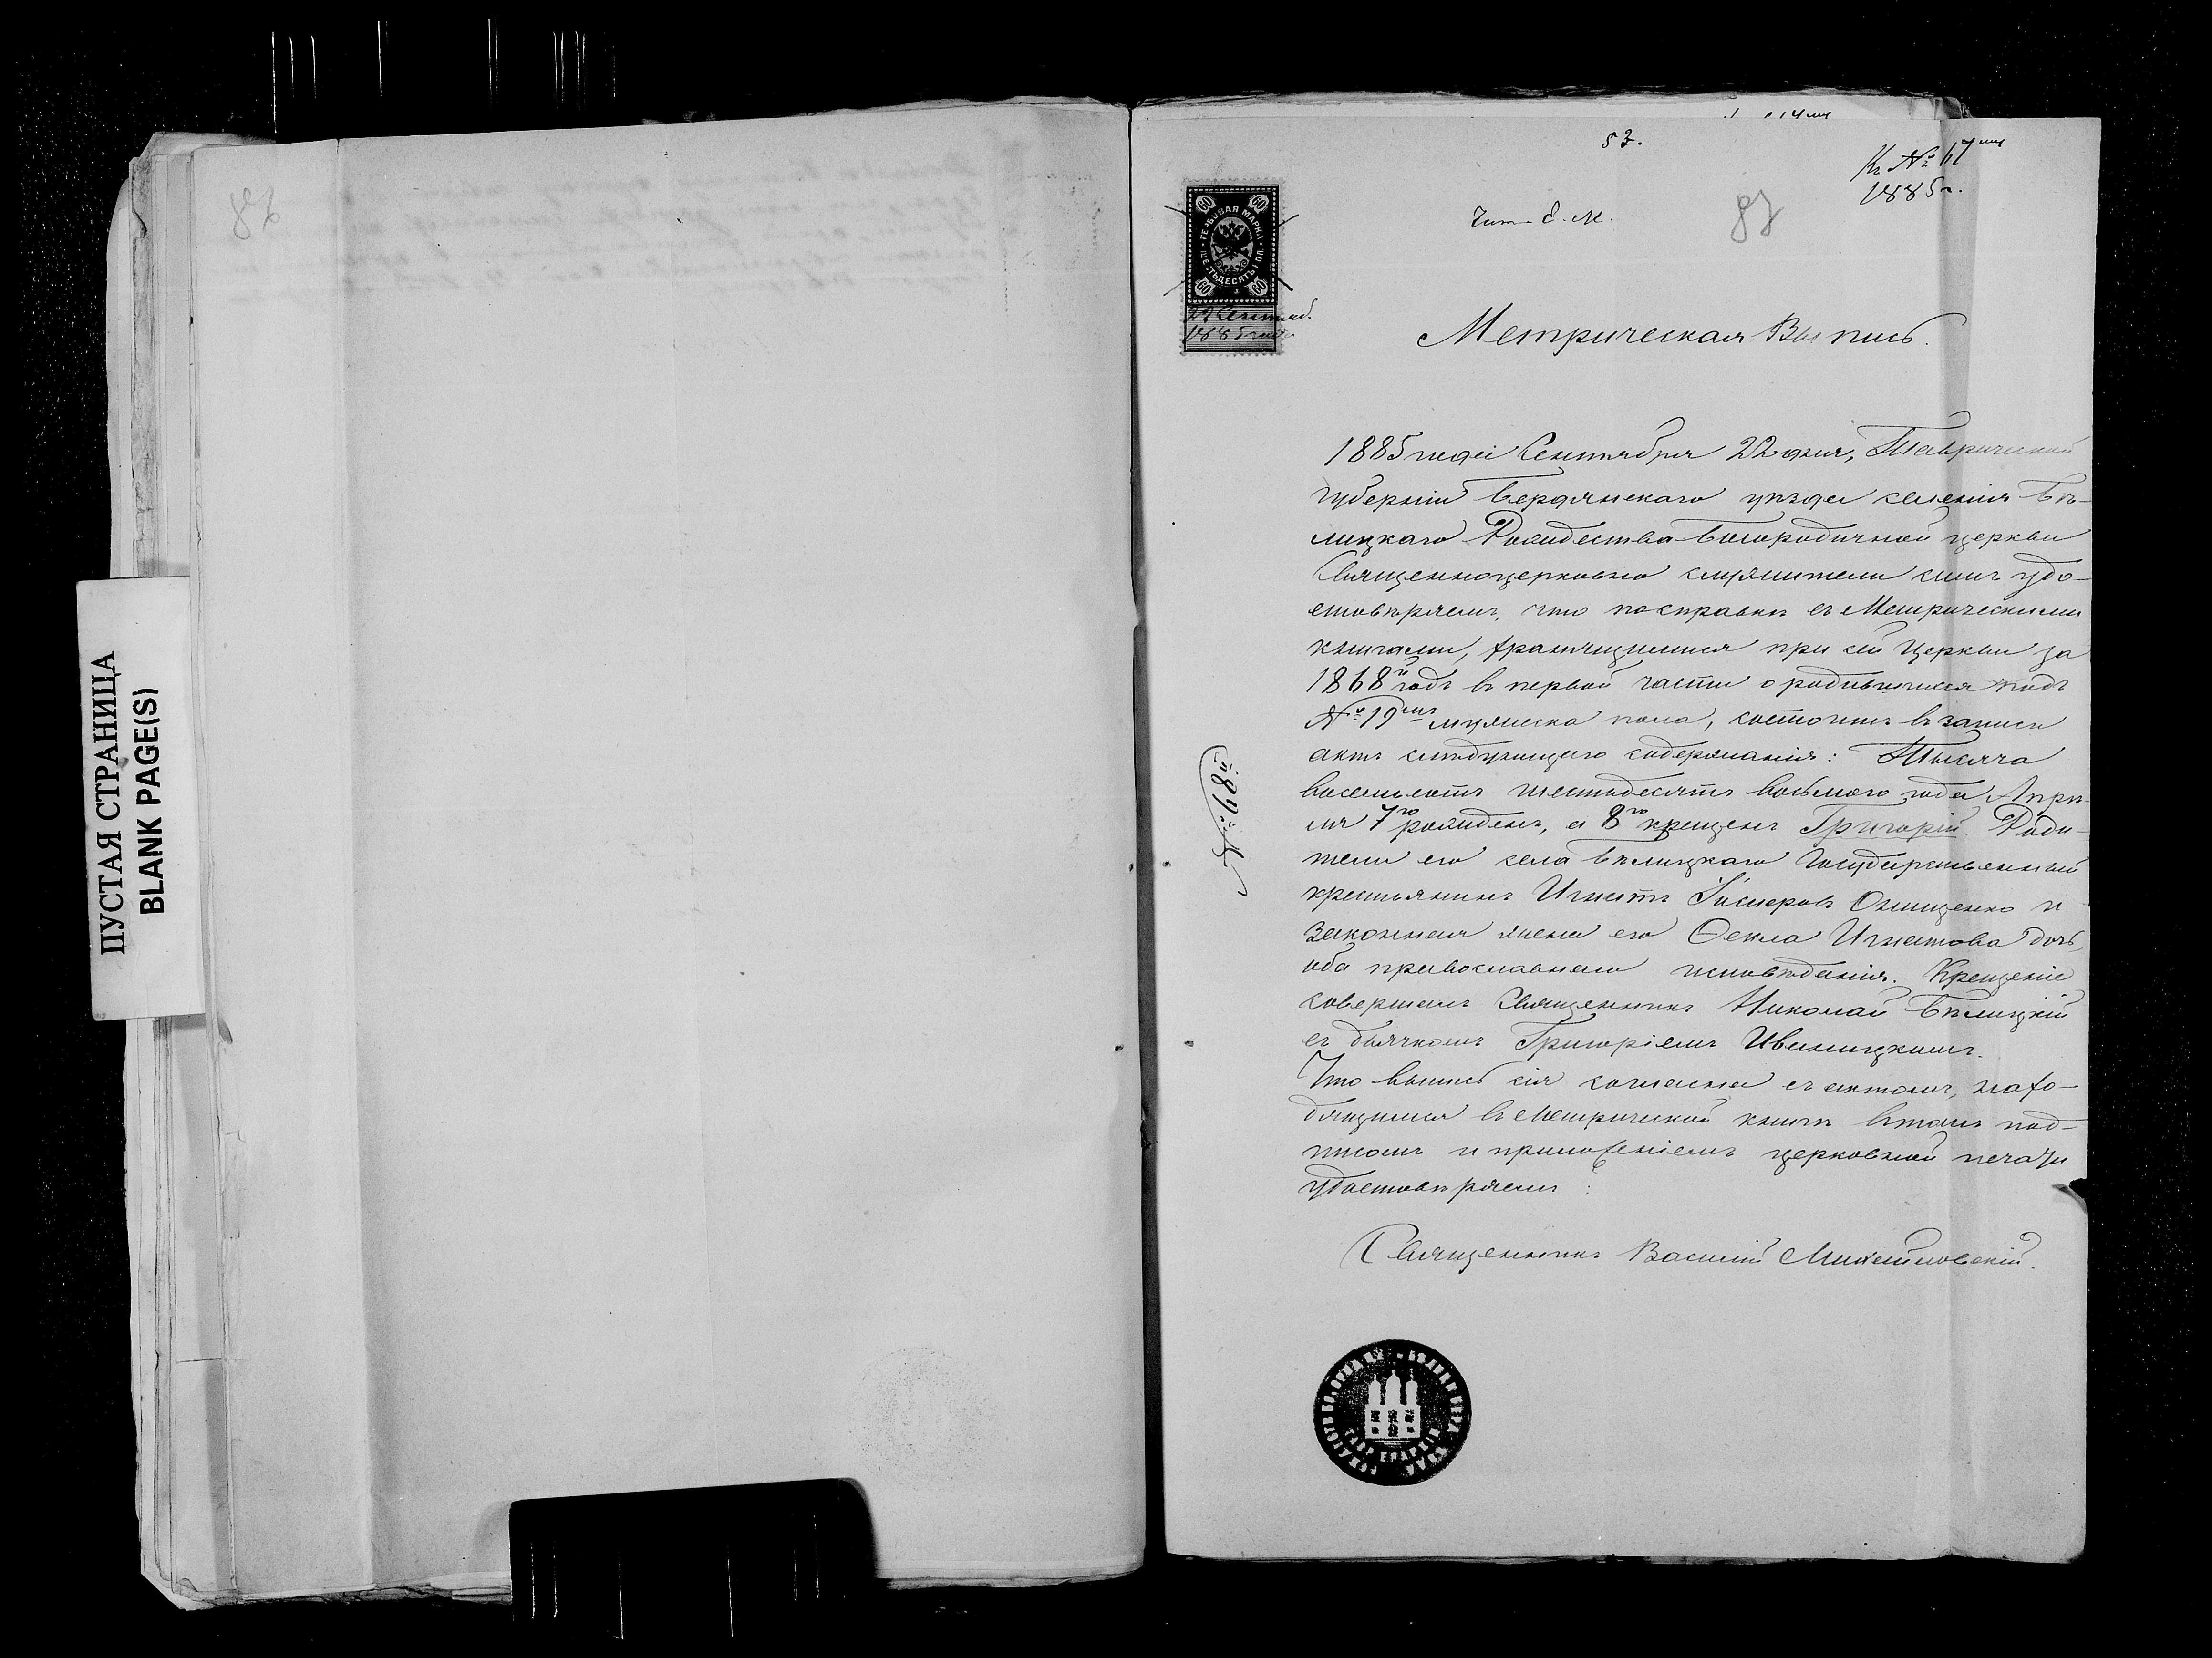 ПУСТАЯ СТРАНИЦА
BLANK PAGE(S)
53.
Къ № 67
1885 г.
87
60 60
ГЕРБОВАЯ МАРКА
60 60
22 Сентяб.
1885 года
Метрическая Выпись.
1885 года Сентября 22 дня, Таврической
губерніи Бердянскаго уѣзда селенія Бѣ-
лицкаго Рождества-Богородичной церкви
Священноцерковно служители симъ удо-
стовѣряемъ, что по справкѣ съ Метрическими
книгами, хранящимися при сей Церкви за
1868й годъ въ первой части о родившихся подъ
№ 19мъ мужеска пола, состоитъ въ записи
актъ слѣдующаго содержанія: Тысяча
восемьсотъ шестьдесятъ восьмого года, Апрѣ-
ля 7го рожденъ, а 8го крещенъ Григорій. Роди-
тели его села Бѣлицкаго Государственный
крестьянинъ Игнатъ Онищенко и
законная жена его Ѳекла Игнатова дочь,
оба православнаго исповѣданія. Крещеніе
совершалъ Священникъ Николай Бѣлицкій
съ дьячкомъ Григоріемъ Ивановскимъ.
Что выпись сія согласна съ актомъ, нахо-
дящимся въ Метрической книгѣ въ томъ под-
писомъ и приложеніемъ церковной печати
удостовѣряемъ:
Священникъ Василій
№ 68й